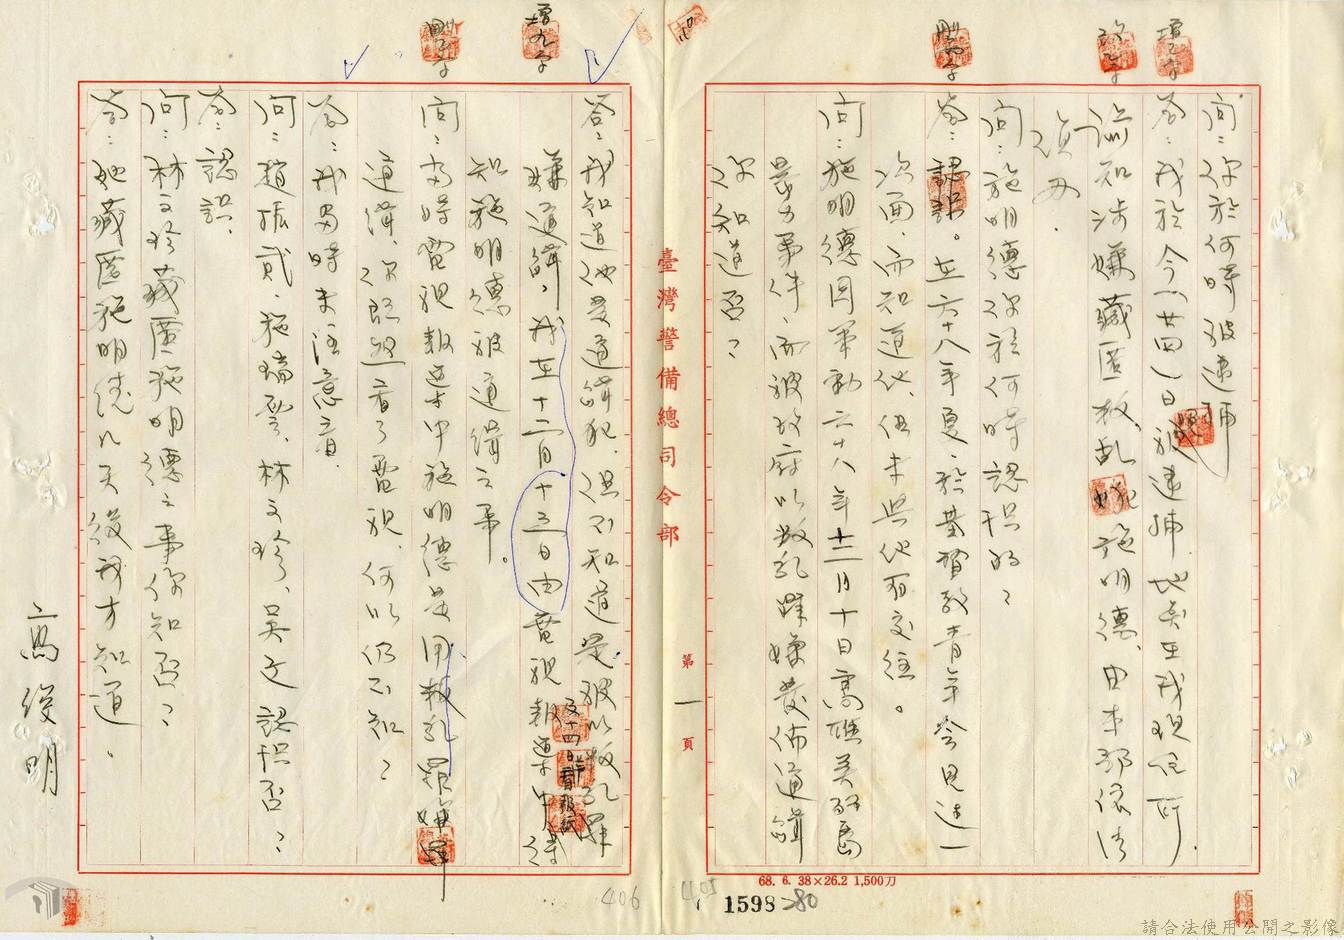 問：你於何時被逮捕
答：我於今(廿四)日被逮捕地點在我現住所。
諭知涉嫌藏匿叛亂犯施明德、由本部依法
偵办．
問：施明德你於何時認識的？
答：認識。在六十八年夏、於基督教青年會見過一
次面、而知道他、但未與他有交往。
問：施明德因軍動六十八年十二月十日高雄美麗島
暴力事件、而被政府以叛亂罪嫌發佈通緝
你知道否？
答：我知道他是通緝犯、但不知道是被以叛亂罪
嫌通緝、我在十二月十五日由電視報導中得
及十四日看報紙
知施明德被通緝之事。
問：當時電視報導中施明德是用叛亂罪嫌
通緝、你既然看了電視、何以仍不知？
答：我當時未注意看．
問：趙振貳、施瑞雲、林文珍、吳文認識否？
答：認識．
問：林文珍藏匿施明德之事你知否？
答：她藏匿施明德几天後我才知道。
高俊明
臺灣警備總司令部
第一頁
68. 6. 38×26.2 1,500刀
405
406
1598
280
請合法使用公開之影像